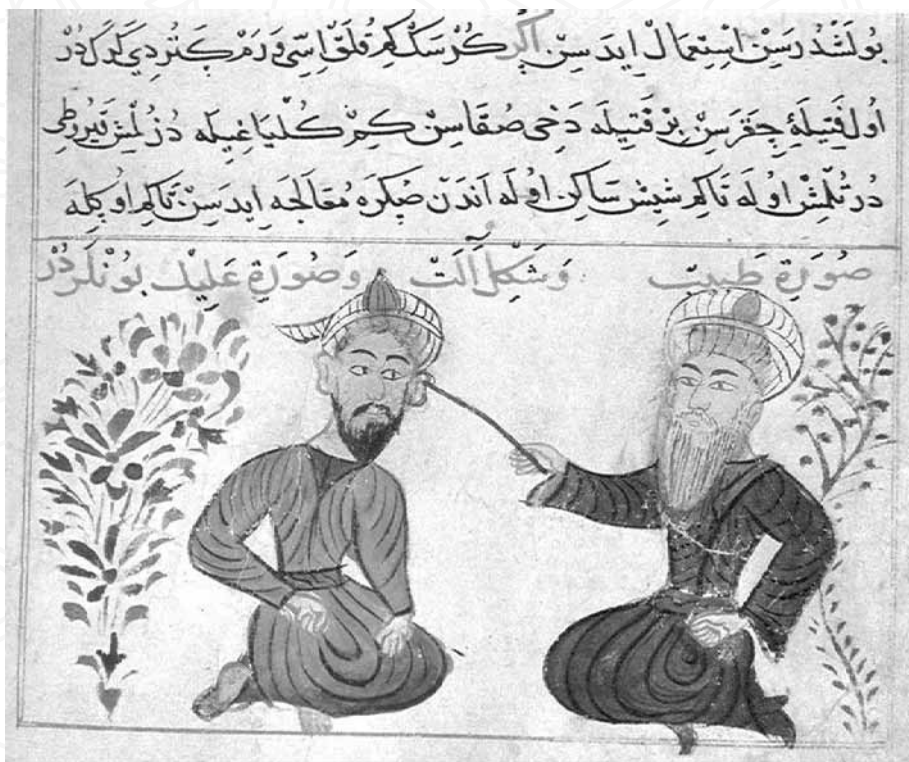 بُولَشْدُرَسِنْ اِسْتِعْمَالْ اِيدَسِنْ اَكَرْ كُرْسَكْ كِمْ قُلَقْ اِسِّى وَرَمْ كَتُرْدِي كَرَكْدُرْ
اُول فَتِيلَهٔ جِقَرَسِنْ بِرْ فَتِيلَه دَخِى صُقَاسِنْ كِمْ كُلْ يَاغِيلَه دُزُلْمِشْ قَيْرُوطِى
دُرْتُلْمِشْ اُولَه تَاكِمْ شِيشْ سَاكِنْ اُولَه اَنْدَنْ صِكْرَه مُعَالَجَه اِيدَسِنْ تَاكِمْ اُوكِلَه
صُورَةِ طَبِيبْ وَشَكِلِ اٰلَتْ وَصُورَةِ عَلِيلْ بُونْلَرْدُرْ